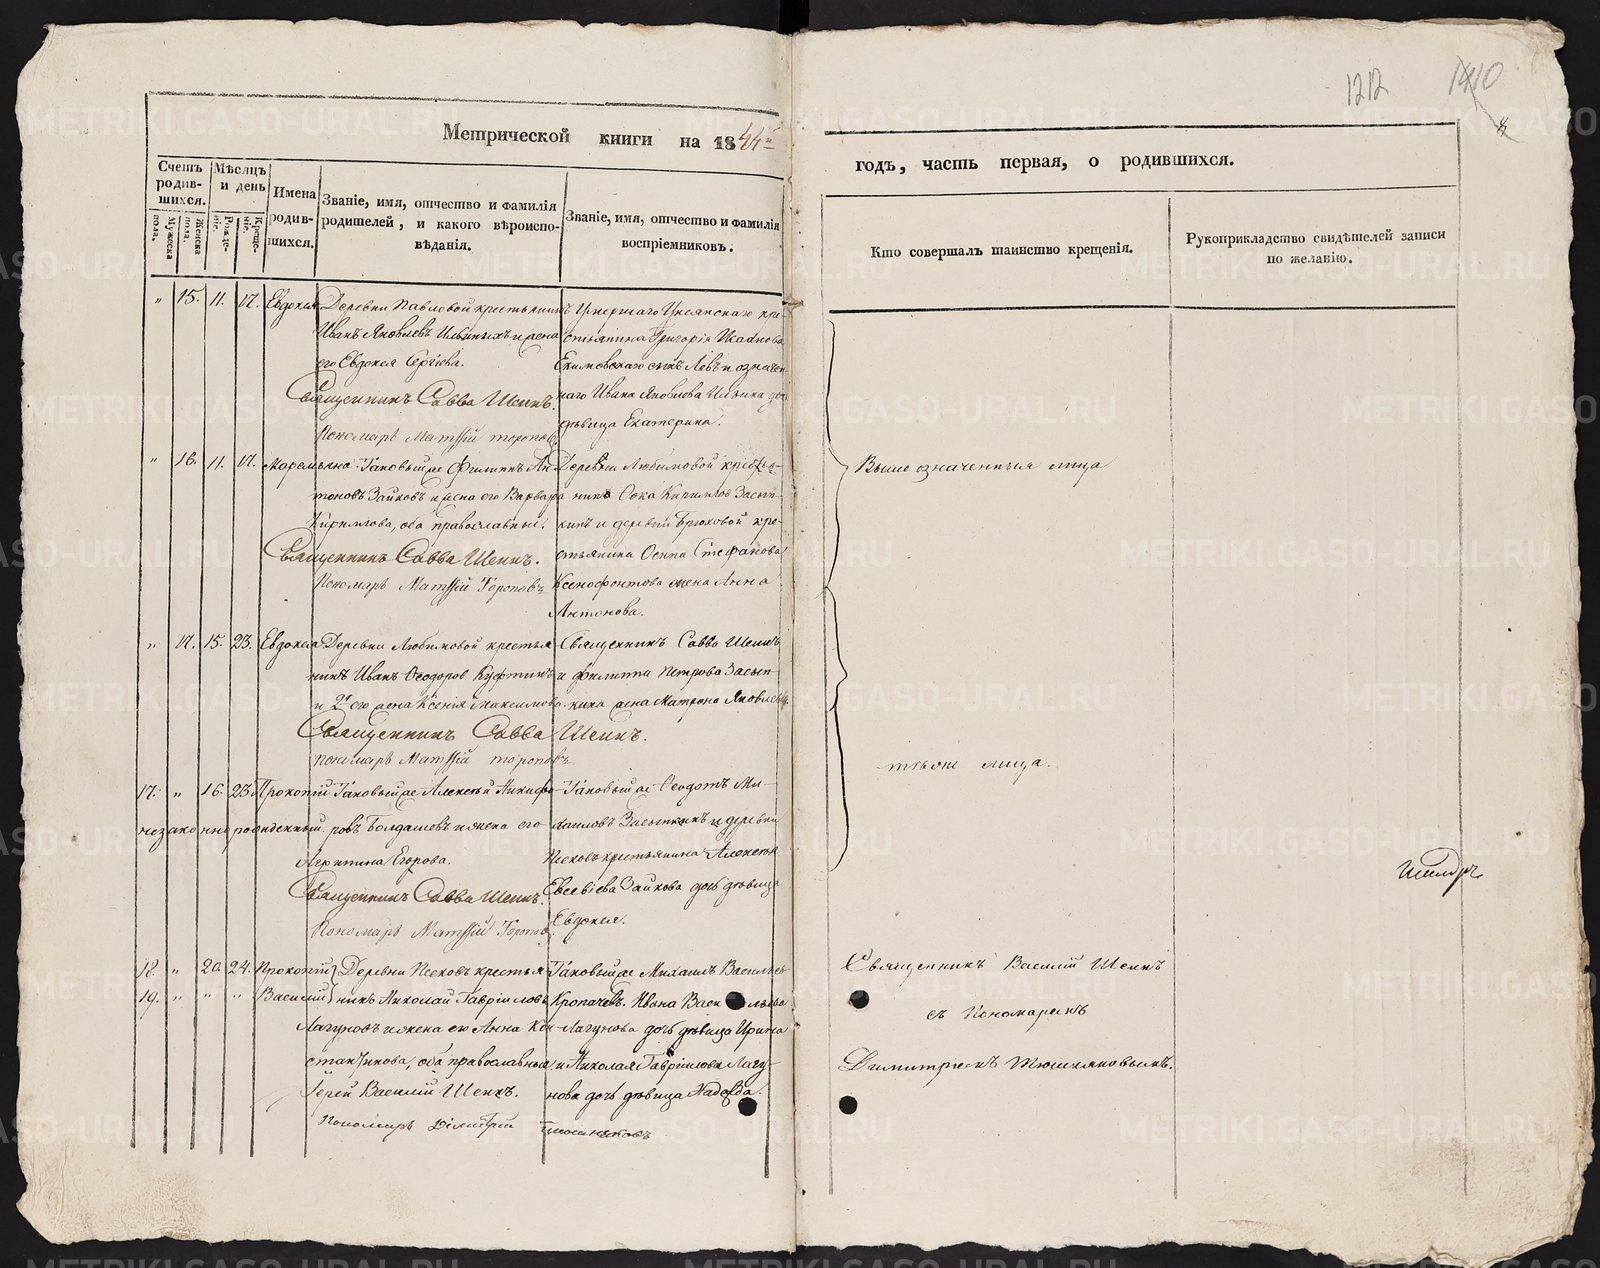 1212
1410
Метрической книги на 1844й
годъ, часть первая, о родившихся.
Счетъ родив-шихся.
Мужеска пола.
Женска пола.
Мѣсяцъ и день
Рожде-ніе.
Креще-ніе.
Имена родив-шихся.
Званіе, имя, отчество и фамилія родителей, и какого вѣроиспо-вѣданія.
Званіе, имя, отчество и фамилія воспріемниковъ.
Кто совершалъ таинство крещенія.
Рукоприкладство свидѣтелей записи по желанію.
" 15. 11. 17. Евдокія
Деревни Павловой крестьянинъ
Иванъ Яковлевъ Ильиныхъ и жена
его Евдокея Сергіева.
Священникъ Савва Шеинъ.
Пономарь Матѳій Торопов
стьянина Григорія
сынъ Левъ и означен
наго Ивана Яковлева Ильина
дѣвица Екатерина.
" 16. 11. 17.
Таковый же Филиппъ Ан
тоновъ Зайковъ и жена его Варвара
Кирилова, оба православные.
Священникъ Савва Шеинъ.
Пономарь Матѳій Тороповъ
Деревни Любимовой крестья-
нинъ Ѳока Кириллов Засып
кинъ и деревни Брюховой кре-
стьянина Осипа Стефанова
Ксенофонтова жена Анна
Антонова.
Выше означенныя лица
" 17. 15. 23. Евдокея
Деревни Любимовой крестья
нинъ Иванъ Ѳеодоров
и 2я его жена Ксенія Максимова.
Священникъ Савва Шеинъ.
пономарь Матѳій торопов
Священникъ Савва Шеинъ
и Филиппа Петрова Засып
кина жена Матрона Яковлева
17. " 16. 23. Прокопій
незаконнорожденный.
Таковый же Алексѣй Никифо
ровъ Болдашевъ и жена его
Агрипина Егорова.
Священникъ Савва Шеинъ.
Пономарь Матѳій Торопов
Таковый же Ѳеодотъ Ми-
хаиловъ Засыпкинъ и деревни
Песковъ крестьянина Алексѣя
Евсевіева Зайкова дочь дѣвица
Евдокея.
тѣже лица.
18. " 20. 24. Прокопій
19. " " " Василій
Деревни Песковъ крестья
нинъ Николай Гавриловъ
Лагуновъ и жена его Анна Кон
стантинова, оба православные.
Іерей Василій Шеинъ.
Пономарь Димитрій
Таковый же Михаилъ Васильев
Кропачевъ. Ивана Васильева
Лагунова дочь дѣвица Ирина
и Николая Гаврилова Лагу-
нова дочь дѣвица Надежда.
Священникъ Василій Шеинъ
съ Пономаремъ
Димитріемъ Тюшняковымъ.